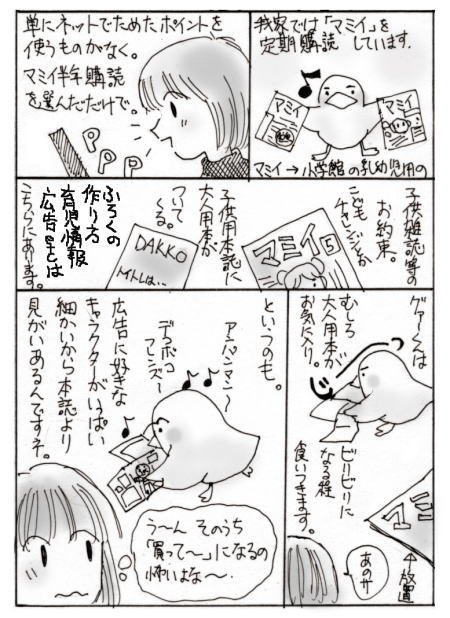 我家では「マミイ」を
定期購読しています.
マミイ
マミイ
マミイ→小学館の乳幼児用の
単にネットでためたポイントを
使うものがなく。
マミイ半年購読
を選んだだけで。
P
P
P
子供雑誌等の
お約束。
こどもチャレンジとか
マミイ
5
子供用本誌に
大人用本が
ついて
くる。
DAKKO
ふろくの
作り方
育児情報
広告etcは
こちらにあります。
グァーくは
むしろ
大人用本が
お気に入り。
ビリビリに
なる程
食いつきます。
マミイ
↑放置
あのサ
といつのも。
アンパンマン〜
デコボコ
フレンズ〜
広告に好きな
キャラクターがいっぱい
細かいから本誌より
見がいあるんですネ。
う〜ん そのうち
「買って〜」になるの
怖いな〜.